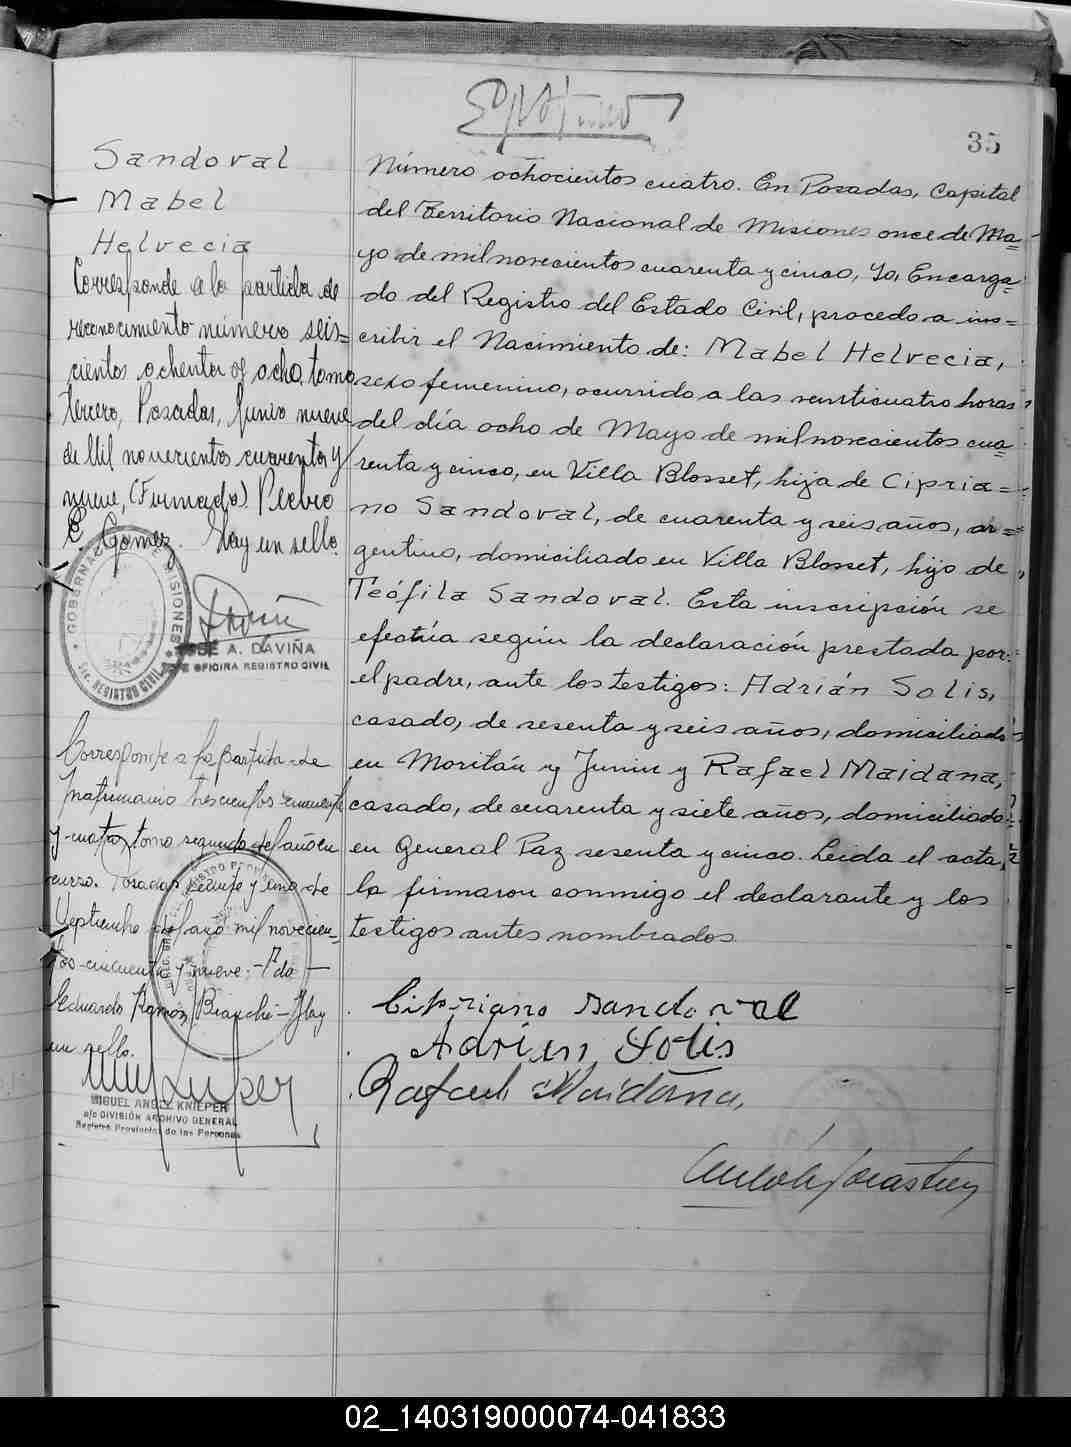 35
Sandoval
Mabel
Helvecia
Corresponde a la partida de
reconocimiento número seis=
cientos ochenta y ocho, tomo
tercero, Posadas, Junio nueve
de Mil novecientos cuarenta y
nueve, (Firmado) Pedro
E. Gomez. Hay un sello.
GOBERNA MISIONES
REGISTRO CIVIL
JOSÉ A. DAVIÑA
JEFE OFICINA REGISTRO CIVIL
Corresponde a la partida de
matrimonio trescientos cincuenta
y cuatro, tomo segundo del año en
curso. Posadas veinte y uno de
Septiembre del año mil novecien-
tos cincuenta y nueve.- Fdo -
Eduardo Ramón Bianchi - Hay
un sello.
MIGUEL ANGEL KNIEPER
a/c DIVISIÓN ARCHIVO GENERAL
Registro Provincial de las Personas
Número ochocientos cuatro. En Posadas, Capital
del Territorio Nacional de Misiones once de Ma=
yo de mil novecientos cuarenta y cinco, Yo, Encarga=
do del Registro del Estado Civil, procedo a ins=
cribir el Nacimiento de: Mabel Helvecia,
sexo femenino, ocurrido a las veinticuatro horas
del día ocho de Mayo de mil novecientos cua=
renta y cinco, en Villa Blosset, hija de Cipria=
no Sandoval, de cuarenta y seis años, ar=
gentino, domiciliado en Villa Blosset, hijo de
Teófila Sandoval. Esta inscripción se
efectúa según la declaración prestada por
el padre, ante los testigos: Adrián Solis,
casado, de sesenta y seis años, domiciliado
en Moritán y Junin y Rafael Maidana,
casado, de cuarenta y siete años, domiciliado
en General Paz sesenta y cinco. Leida el acta,
la firmaron conmigo el declarante y los
testigos antes nombrados.
Cipriano Sandoval
Adrian Solis
Rafael Maidana,
02_140319000074-041833